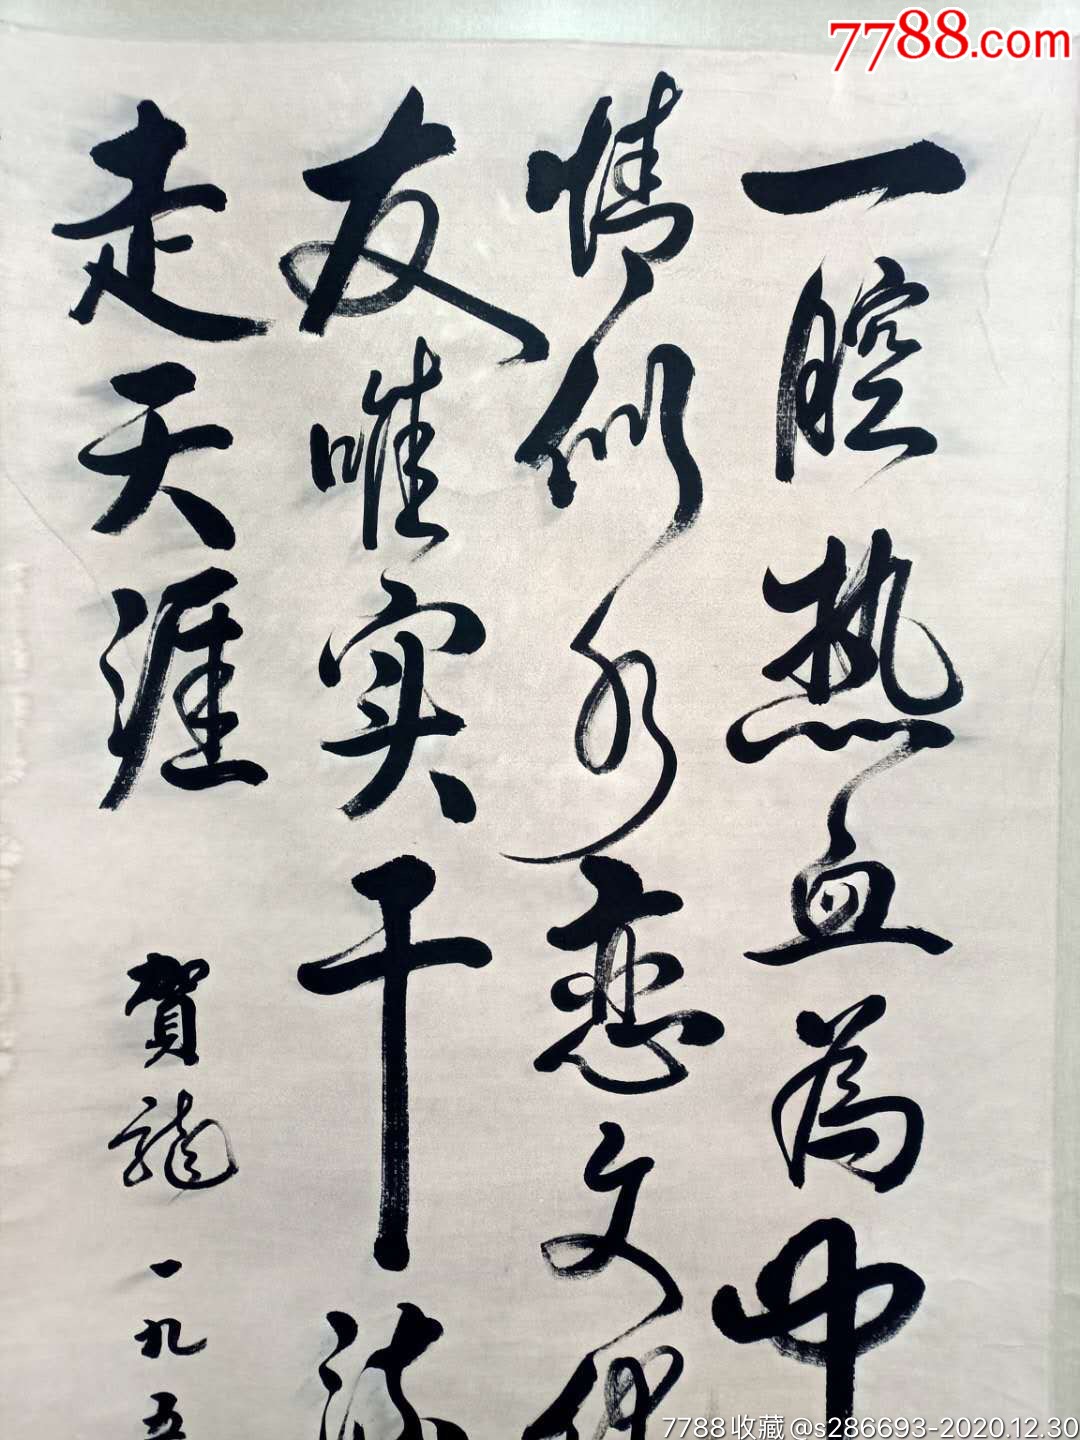 7788.com
一腔热血為中
情似水恋文
友唯实干
走天涯
賀龍
一九五
7788收藏@s286693-2020.12.30